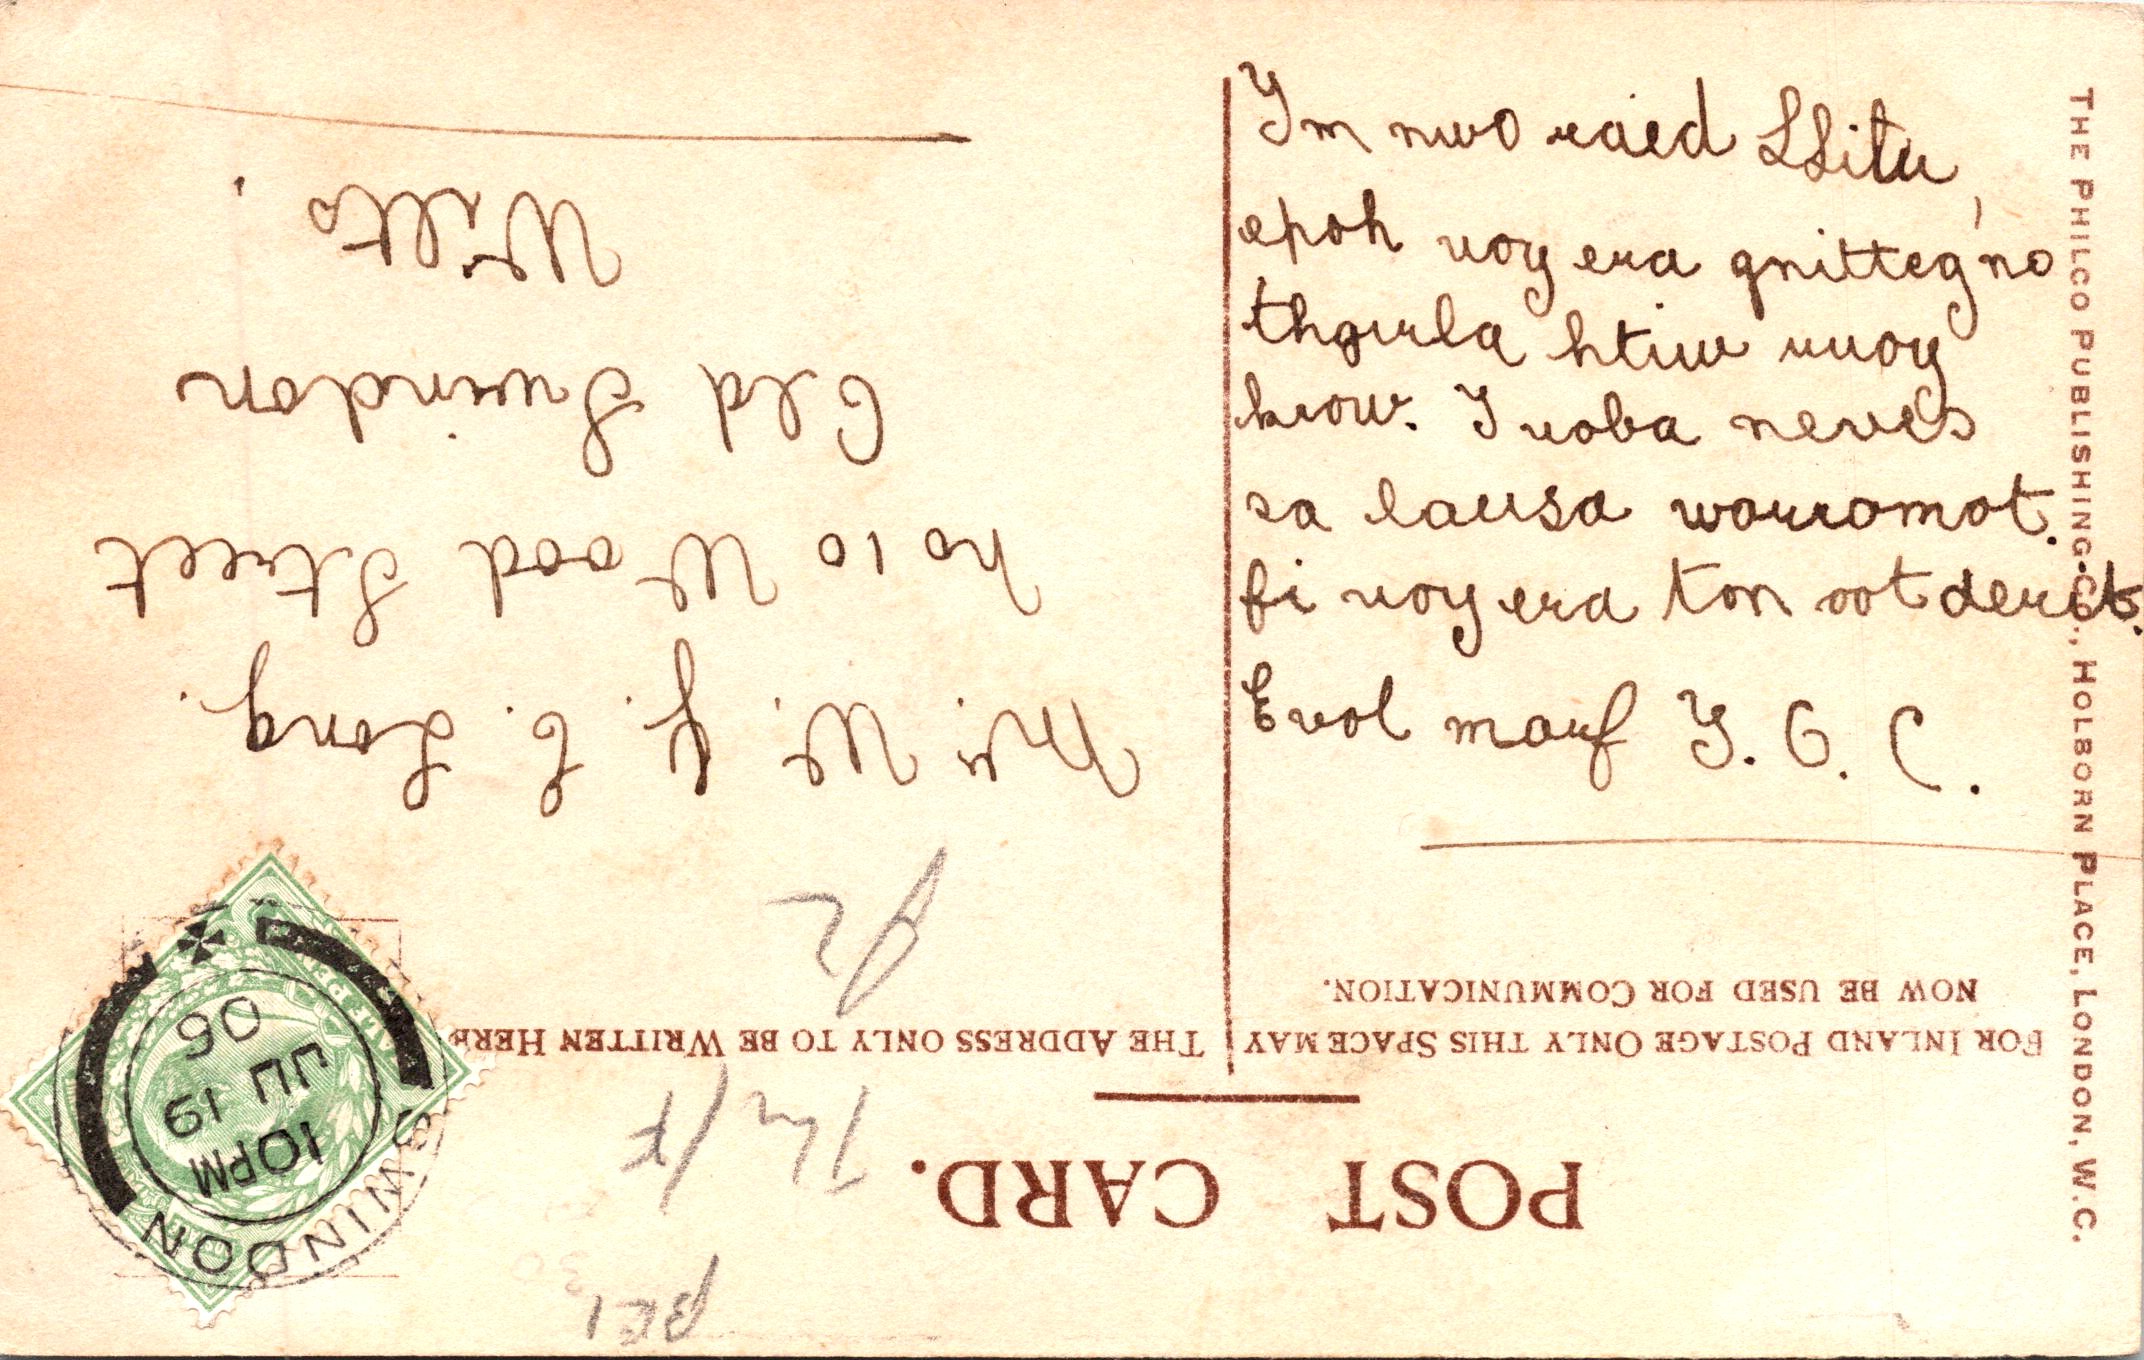 Ym nwo raed Llitu,
epoh uoy era gnitteg no
thgirla htiw ruoy
krow. I uoba neves
sa lausa worromot.
fi uoy era ton oot derit.
Evol morf Y. O. C.
Mr. W. J. E. Long.
no 10 Wood Street
Old Swindon
Wilts.
POST CARD.
FOR INLAND POSTAGE ONLY THIS SPACE MAY
NOW BE USED FOR COMMUNICATION.
THE ADDRESS ONLY TO BE WRITTEN HERE
THE PHILCO PUBLISHING CO., HOLBORN PLACE, LONDON, W.C.
SWINDON
10 PM
JU 19
06